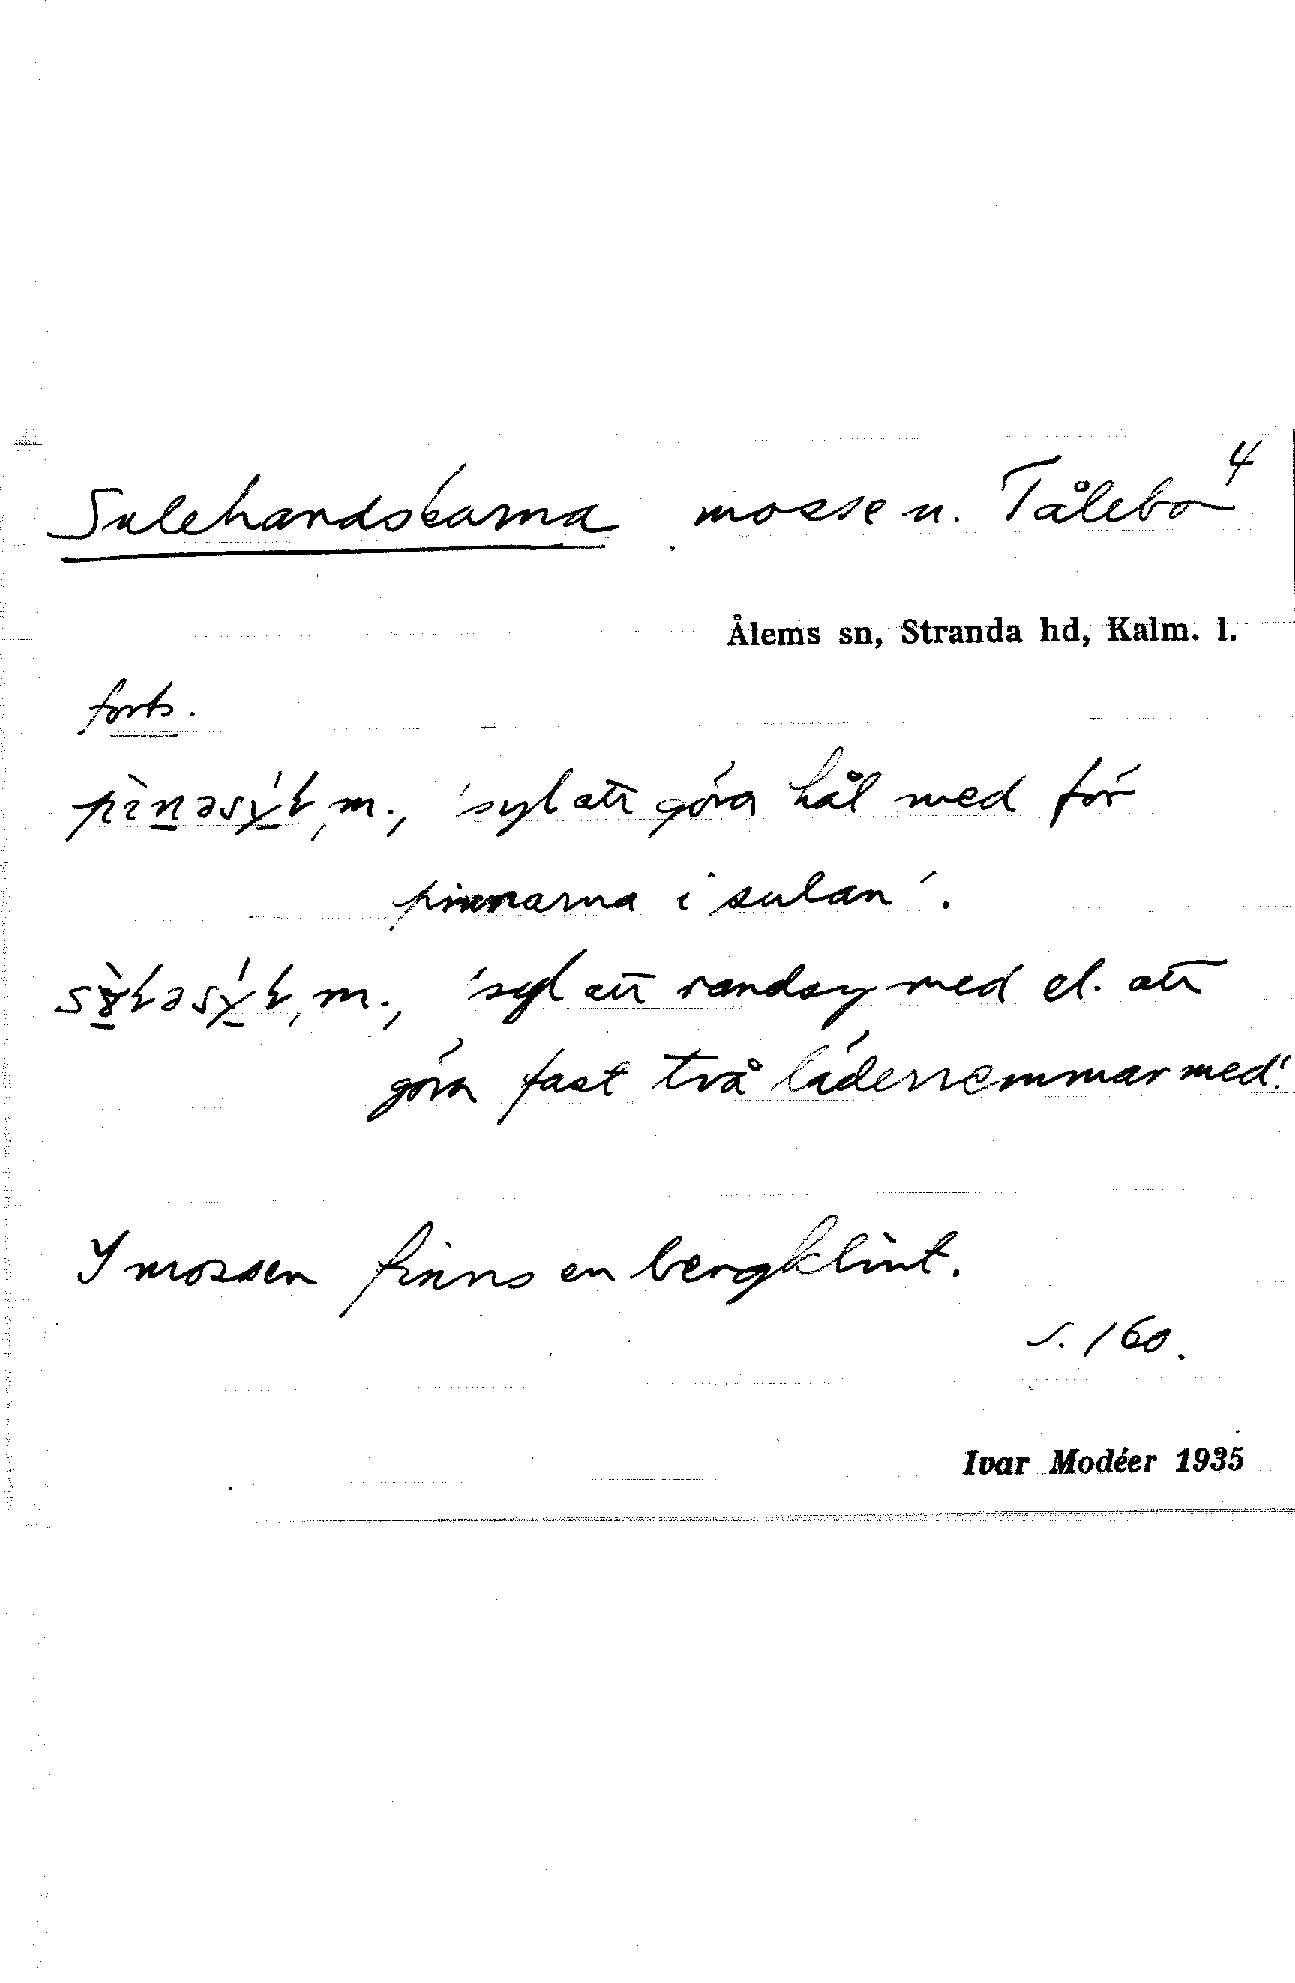 Sulehandskarna mosse n. Tålebo 4
Ålems sn, Stranda hd, Kalm. l.
forts.
m., 'syl att göra hål med för
pinnarna i sulan'.
m., 'syl att randsy med el. att
göra fast två läderremmar med'.
I mossen finns en bergklint.
s. 160.
Ivar Modéer 1935